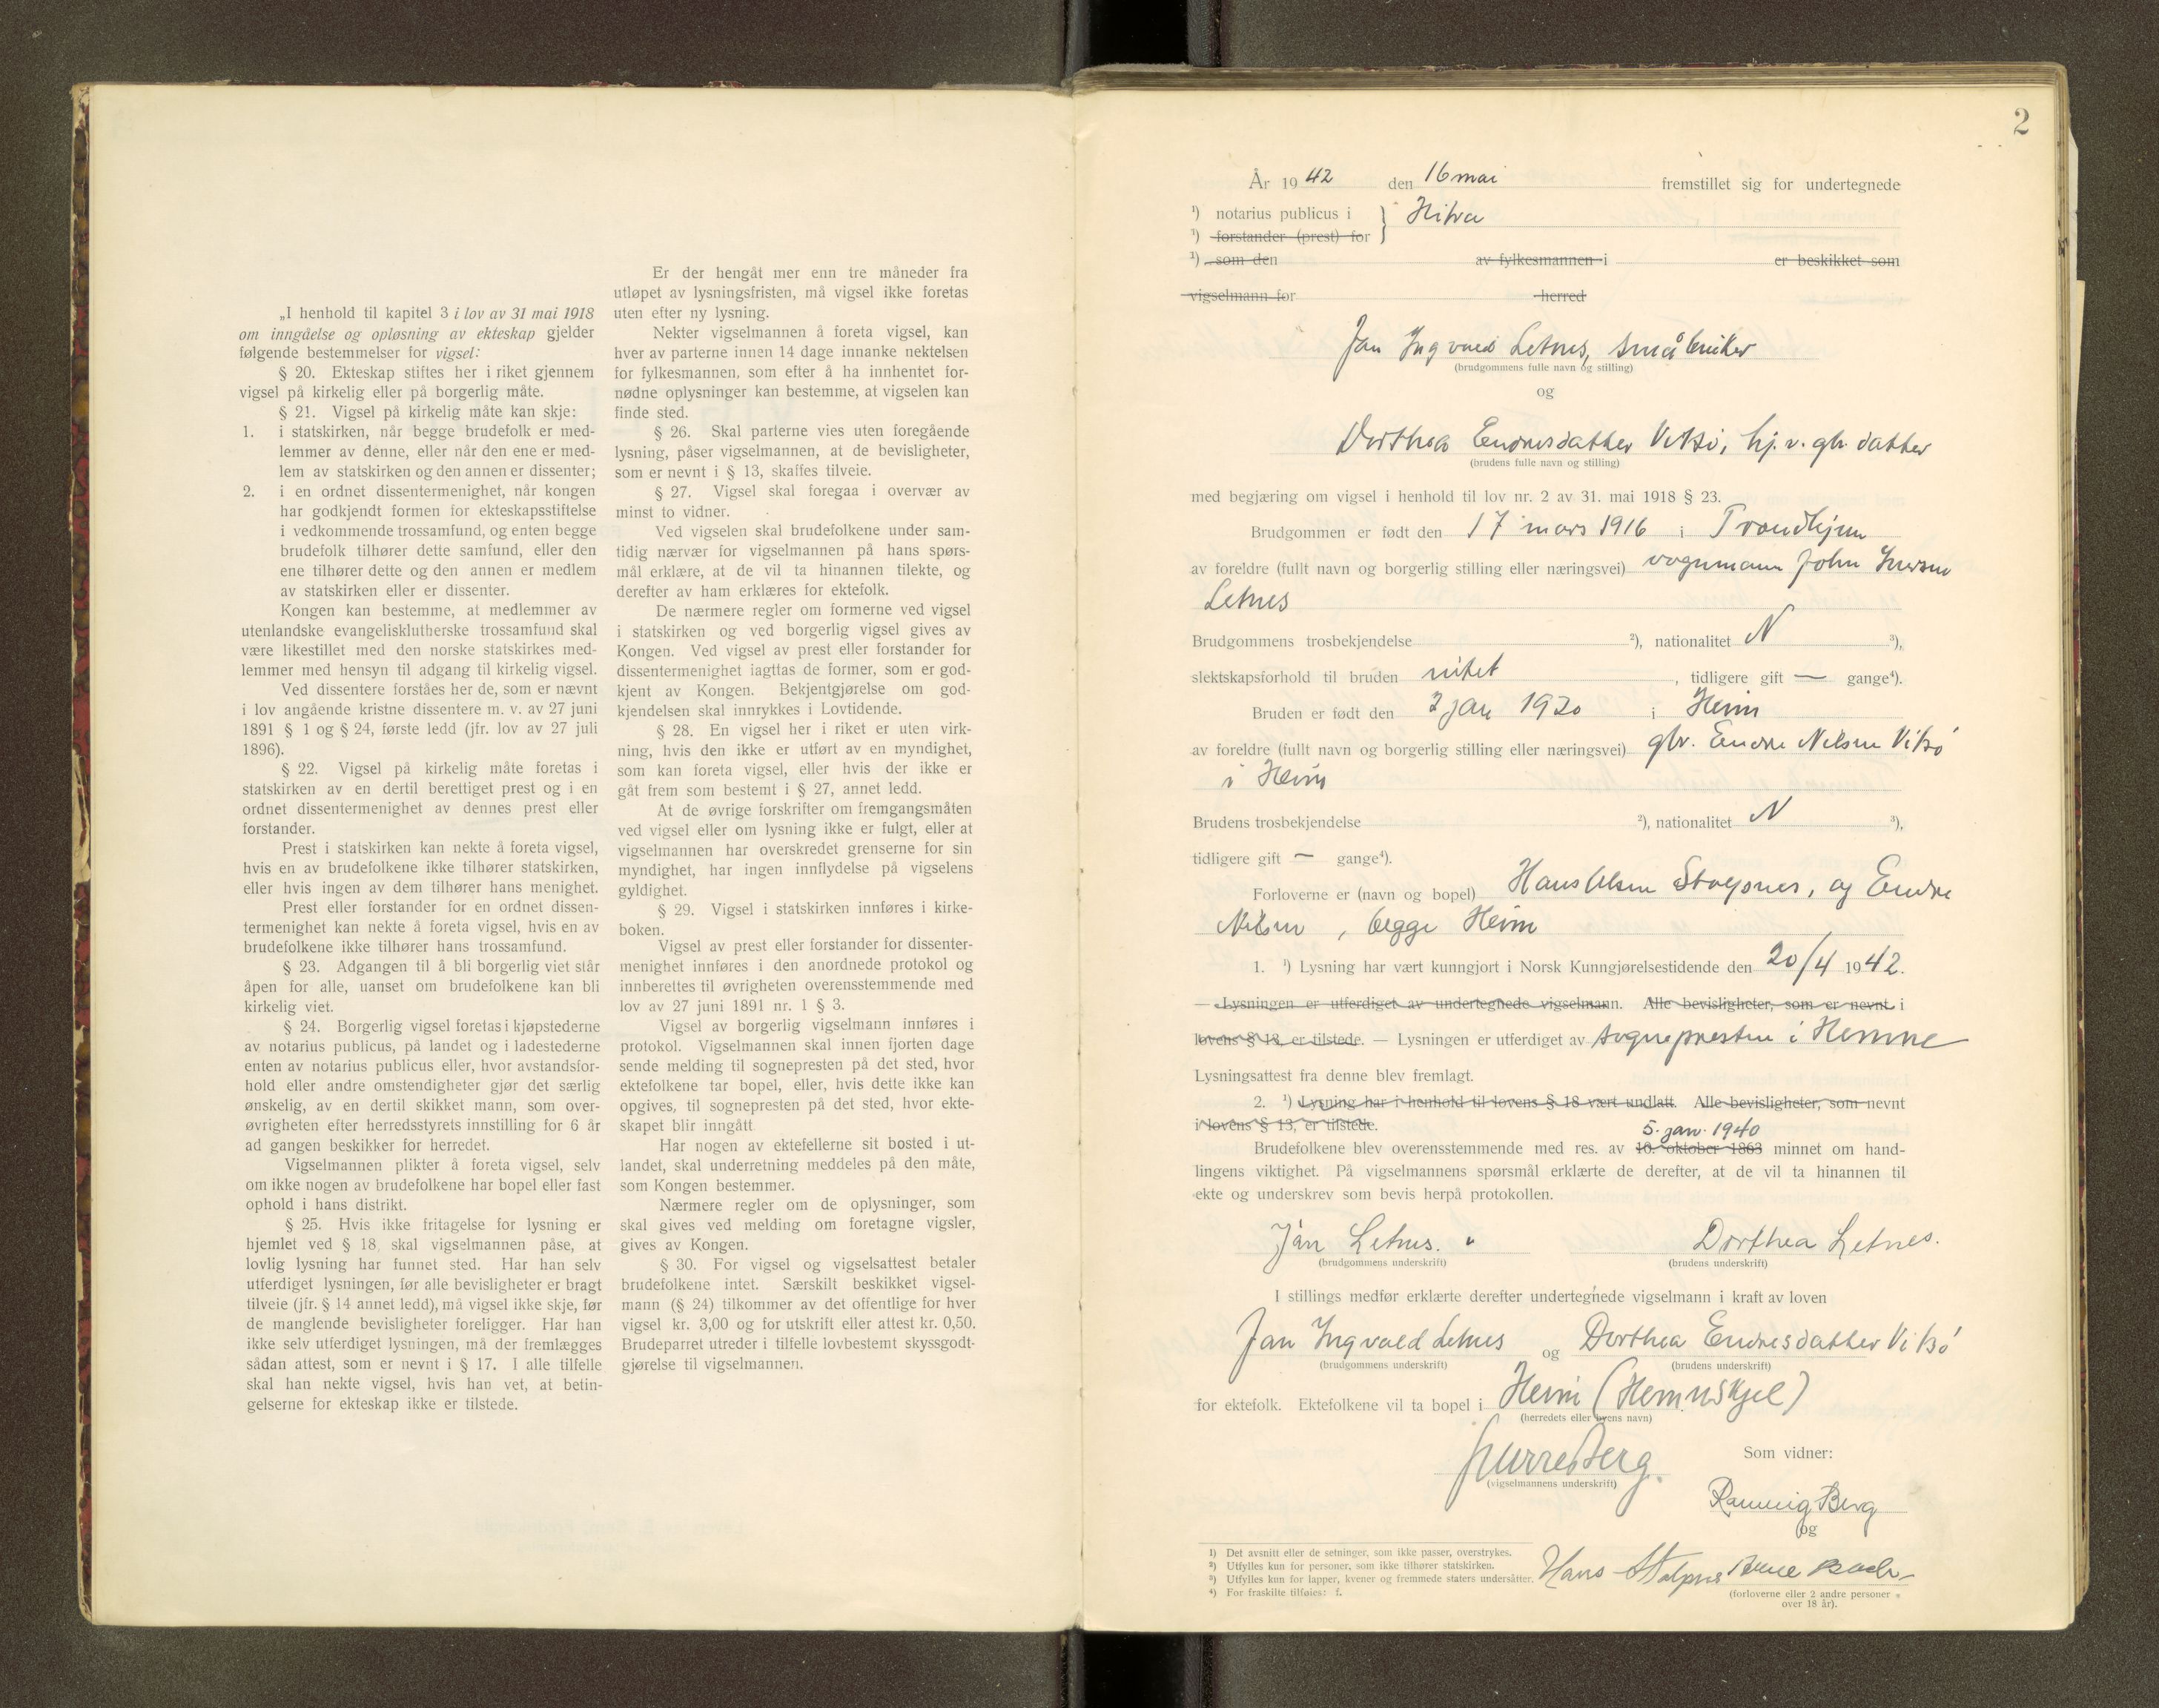 „I henhold til kapitel 3 i lov av 31 mai 1918
om inngåelse og opløsning av ekteskap gjelder
følgende bestemmelser for vigsel:
§ 20. Ekteskap stiftes her i riket gjennem
vigsel på kirkelig eller på borgerlig måte.
§ 21. Vigsel på kirkelig måte kan skje:
1. i statskirken, når begge brudefolk er med-
lemmer av denne, eller når den ene er med-
lem av statskirken og den annen er dissenter;
2. i en ordnet dissentermenighet, når kongen
har godkjendt formen for ekteskapsstiftelse
i vedkommende trossamfund, og enten begge
brudefolk tilhører dette samfund, eller den
ene tilhører dette og den annen er medlem
av statskirken eller er dissenter.
Kongen kan bestemme, at medlemmer av
utenlandske evangelisklutherske trossamfund skal
være likestillet med den norske statskirkes med-
lemmer med hensyn til adgang til kirkelig vigsel.
Ved dissentere forståes her de, som er nævnt
i lov angående kristne dissentere m. v. av 27 juni
1891 § 1 og § 24, første ledd (jfr. lov av 27 juli
1896).
§ 22. Vigsel på kirkelig måte foretas i
statskirken av en dertil berettiget prest og i en
ordnet dissentermenighet av dennes prest eller
forstander.
Prest i statskirken kan nekte å foreta vigsel,
hvis en av brudefolkene ikke tilhører statskirken,
eller hvis ingen av dem tilhører hans menighet.
Prest eller forstander for en ordnet dissen-
termenighet kan nekte å foreta vigsel, hvis en av
brudefolkene ikke tilhører hans trossamfund.
§ 23. Adgangen til å bli borgerlig viet står
åpen for alle, uanset om brudefolkene kan bli
kirkelig viet.
§ 24. Borgerlig vigsel foretas i kjøpstederne
av notarius publicus, på landet og i ladestederne
enten av notarius publicus eller, hvor avstandsfor-
hold eller andre omstendigheter gjør det særlig
ønskelig, av en dertil skikket mann, som over-
øvrigheten efter herredsstyrets innstilling for 6 år
ad gangen beskikker for herredet.
Vigselmannen plikter å foreta vigsel, selv
om ikke nogen av brudefolkene har bopel eller fast
ophold i hans distrikt.
§ 25. Hvis ikke fritagelse for lysning er
hjemlet ved § 18, skal vigselmannen påse, at
lovlig lysning har funnet sted. Har han selv
utferdiget lysningen, før alle bevisligheter er bragt
tilveie (jfr. § 14 annet ledd), må vigsel ikke skje, før
de manglende bevisligheter foreligger. Har han
ikke selv utferdiget lysningen, må der fremlægges
sådan attest, som er nevnt i § 17. I alle tilfelle
skal han nekte vigsel, hvis han vet, at betin-
gelserne for ekteskap ikke er tilstede.
Er der hengåt mer enn tre måneder fra
utløpet av lysningsfristen, må vigsel ikke foretas
uten efter ny lysning.
Nekter vigselmannen å foreta vigsel, kan
hver av parterne innen 14 dage innanke nektelsen
for fylkesmannen, som efter å ha innhentet for-
nødne oplysninger kan bestemme, at vigselen kan
finde sted.
§ 26. Skal parterne vies uten foregående
lysning, påser vigselmannen, at de bevisligheter,
som er nevnt i § 13, skaffes tilveie.
§ 27. Vigsel skal foregaa i overvær av
minst to vidner.
Ved vigselen skal brudefolkene under sam-
tidig nærvær for vigselmannen på hans spørs-
mål erklære, at de vil ta hinannen tilekte, og
derefter av ham erklæres for ektefolk.
De nærmere regler om formerne ved vigsel
i statskirken og ved borgerlig vigsel gives av
Kongen. Ved vigsel av prest eller forstander for
dissentermenighet iagttas de former, som er god-
kjent av Kongen. Bekjentgjørelse om god-
kjendelsen skal innrykkes i Lovtidende.
§ 28. En vigsel her i riket er uten virk-
ning, hvis den ikke er utført av en myndighet,
som kan foreta vigsel, eller hvis der ikke er
gåt frem som bestemt i § 27, annet ledd.
At de øvrige forskrifter om fremgangsmåten
ved vigsel eller om lysning ikke er fulgt, eller at
vigselmannen har overskredet grenserne for sin
myndighet, har ingen innflydelse på vigselens
gyldighet.
§ 29. Vigsel i statskirken innføres i kirke-
boken.
Vigsel av prest eller forstander for dissenter-
menighet innføres i den anordnede protokol og
innberettes til øvrigheten overensstemmende med
lov av 27 juni 1891 nr. 1 § 3.
Vigsel av borgerlig vigselmann innføres i
protokol. Vigselmannen skal innen fjorten dage
sende melding til sognepresten på det sted, hvor
ektefolkene tar bopel, eller, hvis dette ikke kan
opgives, til sognepresten på det sted, hvor ekte-
skapet blir inngått
Har nogen av ektefellerne sit bosted i ut-
landet, skal underretning meddeles på den måte,
som Kongen bestemmer.
Nærmere regler om de oplysninger, som
skal gives ved melding om foretagne vigsler,
gives av Kongen.
§ 30. For vigsel og vigselsattest betaler
brudefolkene intet. Særskilt beskikket vigsel-
mann (§ 24) tilkommer av det offentlige for hver
vigsel kr. 3,00 og for utskrift eller attest kr. 0,50.
Brudeparret utreder i tilfelle lovbestemt skyssgodt-
gjørelse til vigselmannen.
2
År 1942 den 16 mai fremstillet sig for undertegnede
¹) notarius publicus i } Hitra
¹) forstander (prest) for
¹) som den av fylkesmannen i er beskikket som
vigselmann for herred
Jan Ingvald Letnes, småbruker
(brudgommens fulle navn og stilling)
og
Dorthea Endresdatter Vitsö, hj.v. gbr. datter
(brudens fulle navn og stilling)
med begjæring om vigsel i henhold til lov nr. 2 av 31. mai 1918 § 23.
Brudgommen er født den 17 mars 1916 i Trondhjem
av foreldre (fullt navn og borgerlig stilling eller næringsvei) vognmann John Iversen
Letnes
Brudgommens trosbekjendelse ²), nationalitet N ³),
slektskapsforhold til bruden intet, tidligere gift — gange⁴).
Bruden er født den 2 jan 1920 i Heim
av foreldre (fullt navn og borgerlig stilling eller næringsvei) gbr. Endre Nilsen Vitsö
i Heim
Brudens trosbekjendelse ²), nationalitet N ³),
tidligere gift — gange⁴).
Forloverne er (navn og bopel) Hans Olsen Stolpnes, og Endre
Nilsen, begge Heim
1. ¹) Lysning har vært kunngjort i Norsk Kunngjørelsestidende den 20/4 1942.
— Lysningen er utferdiget av undertegnede vigselmann. Alle bevisligheter, som er nevnt i
lovens § 13, er tilstede. — Lysningen er utferdiget av sognepresten i Hemne
Lysningsattest fra denne blev fremlagt.
2. ¹) Lysning har i henhold til lovens § 18 vært undlatt. Alle bevisligheter, som nevnt
i lovens § 13, er tilstede.
5. jan. 1940
Brudefolkene blev overensstemmende med res. av 10. oktober 1863 minnet om hand-
lingens viktighet. På vigselmannens spørsmål erklærte de derefter, at de vil ta hinannen til
ekte og underskrev som bevis herpå protokollen.
Jan Letnes. Dorthea Letnes.
(brudgommens underskrift) (brudens underskrift)
I stillings medfør erklærte derefter undertegnede vigselmann i kraft av loven
Jan Ingvald Letnes og Dorthea Endresdatter Vitsö
(brudgommens underskrift) (brudens underskrift)
for ektefolk. Ektefolkene vil ta bopel i Heim (Hemnskjel)
(herredets eller byens navn)
Berg.
(vigselmannens underskrift)
Som vidner:
Rannveig Berg
og
Hans Stolpnes
(forloverne eller 2 andre personer
over 18 år).
¹) Det avsnitt eller de setninger, som ikke passer, overstrykes.
²) Utfylles kun for personer, som ikke tilhører statskirken.
³) Utfylles kun for lapper, kvener og fremmede staters undersåtter.
⁴) For fraskilte tilføies: f.